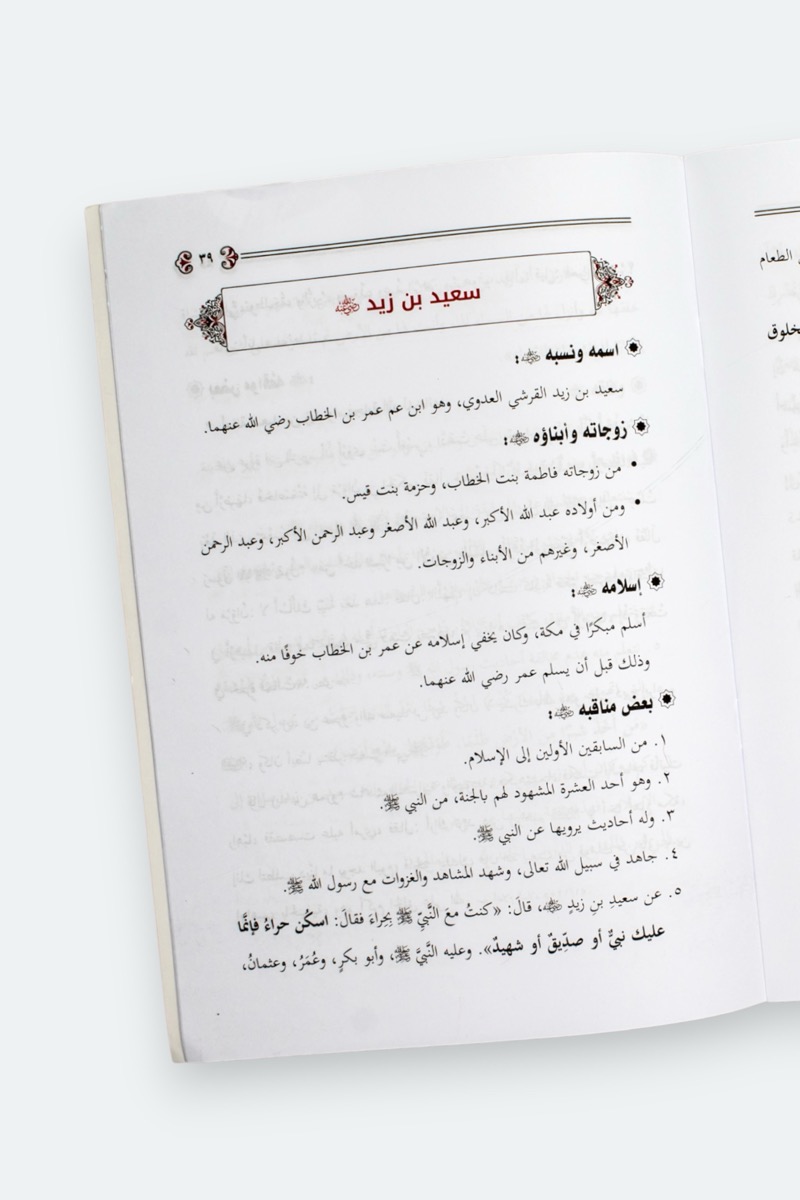 ٣٩
سعيد بن زيد ﵁
اسمه ونسبه ﵁:
سعيد بن زيد القرشي العدوي، وهو ابن عم عمر بن الخطاب رضي الله عنهما.
زوجاته وأبناؤه ﵁:
• من زوجاته فاطمة بنت الخطاب، وحزمة بنت قيس.
• ومن أولاده عبد الله الأكبر، وعبد الله الأصغر وعبد الرحمن الأكبر، وعبد الرحمن
الأصغر، وغيرهم من الأبناء والزوجات.
إسلامه ﵁:
أسلم مبكرًا في مكة، وكان يخفي إسلامه عن عمر بن الخطاب خوفًا منه.
وذلك قبل أن يسلم عمر رضي الله عنهما.
بعض مناقبه ﵁:
١. من السابقين الأولين إلى الإسلام.
٢. وهو أحد العشرة المشهود لهم بالجنة، من النبي ﷺ.
٣. وله أحاديث يرويها عن النبي ﷺ.
٤. جاهد في سبيل الله تعالى، وشهد المشاهد والغزوات مع رسول الله ﷺ.
٥. عن سعيدِ بنِ زيدٍ ﵁، قالَ: «كنتُ معَ النَّبيِّ ﷺ بِحِراءَ فقالَ: اسكُن حراءُ فإنَّما
عليك نبيٌّ أو صدِّيقٌ أو شهيدٌ». وعليه النَّبيَّ ﷺ، وأبو بكرٍ، وعُمَرُ، وعثمانُ،
الطعام